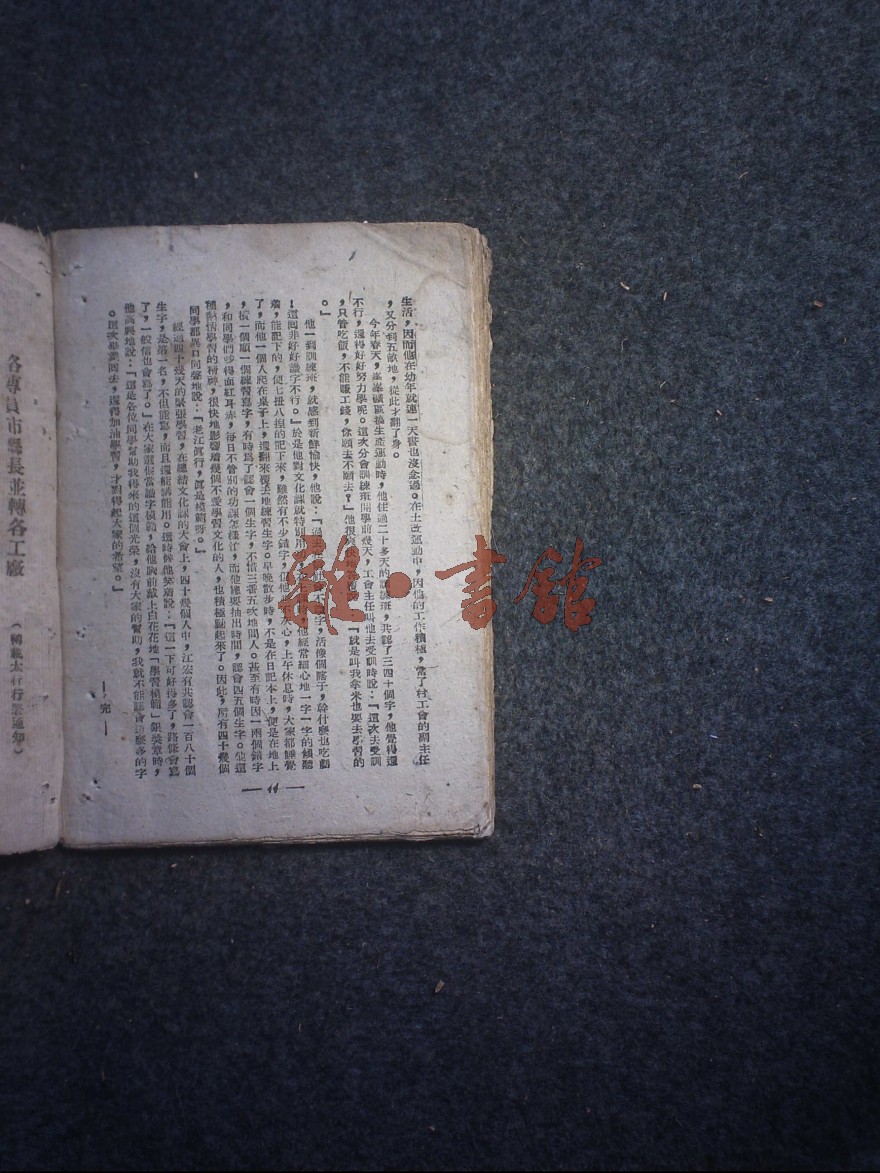 生活，因而他在幼年就連一天書也沒念過。在土改運動中，因他的工作積極，當了村工會的副主任
，又分到五畝地，從此才翻了身。
今年春天，峯峯礦區搞生產運動時，他住過二十多天的訓練班，共認了三四十個字，他覺得還
不行，還得好好努力學呢。這次分會訓練班開學前幾天，工會主任叫他去受訓時說：「這次去受訓
，只管吃飯，不能賺工錢，你願去不願去？」他很 「就是叫我拿米也要去學習的
。」
他一到訓練班，就感到新鮮愉快，他說：「過去 字，活像個瞎子，幹什麼也吃虧
！這回非好好識字不行。」於是他對文化課就特別用 他經常細心地一字一字的傾聽
着，能記下的，便七扭八捏的記下來，雖然有不少錯字，但他 心，上午休息時，大家都睡覺
了，而他一個人爬在桌子上，還翻來覆去地練習生字。早晚散步時，不是在日記本上，便是在地上
，橫一個順一個練習寫字，有時爲了認會一個生字，不惜三番五次地問人。甚至有時因一兩個錯字
，和同學們爭得面紅耳赤，每日不管別的功課怎樣忙，而他總要抽出時間，認會四五個生字。他這
種熱情學習的精神，很快地影響着幾個不愛學習文化的人，也積極起來了。因此，所有四十幾個
同學都異口同聲地說：「老江眞行，眞是模範呀。」
經過四十幾天的緊張學習，在總結文化課的大會上，四十幾個人中，江宏有共認會一百八十個
生字，是第一名，不但能寫，而且還能講能用。這時候他笑着說：「這一下可好得多了，路條會寫
了，一般信也會寫了。」在大家選他當識字模範，給他胸前戴上白花花地「學習模範」銀獎章時，
他高興地說：「這是各位同學幫助我得來的這個光榮，沒有大家的幫助，我就不能認會這麼多的字
。這次畢業回去，還得加油學習，才對得起大家的希望。」
—完—
— 11 —
各專員市縣長並轉各工廠
（轉載太行行業通知）
雜·書館